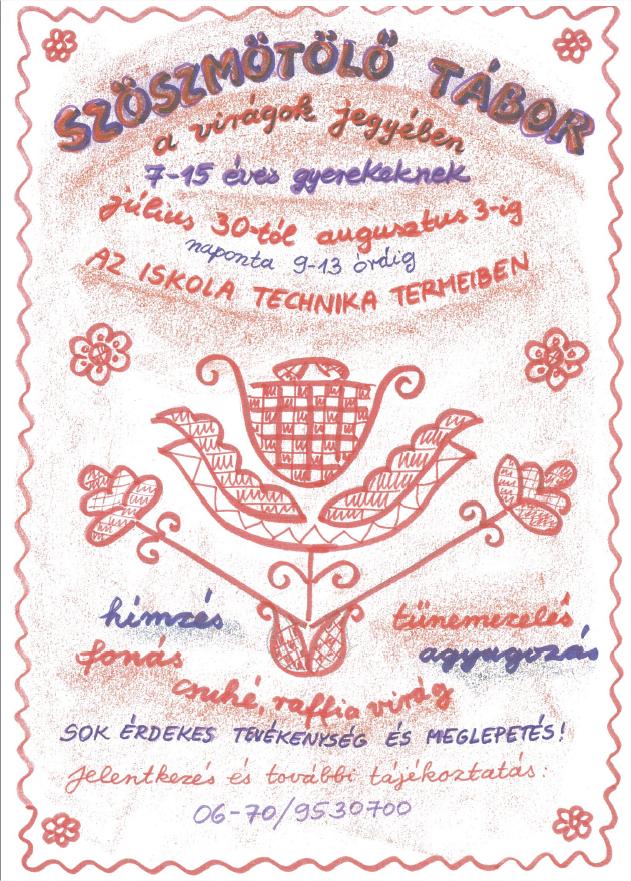 SZÖSZMÖTÖLŐ TÁBOR
a virágok jegyében
7-15 éves gyerekeknek
július 30-tól augusztus 3-ig
naponta 9-13 óráig
AZ ISKOLA TECHNIKA TERMEIBEN
hímzés tűnemezelés
fonás agyagozás
csuhé, raffia virág
SOK ÉRDEKES TEVÉKENYSÉG ÉS MEGLEPETÉS!
Jelentkezés és további tájékoztatás:
06-70/9530700